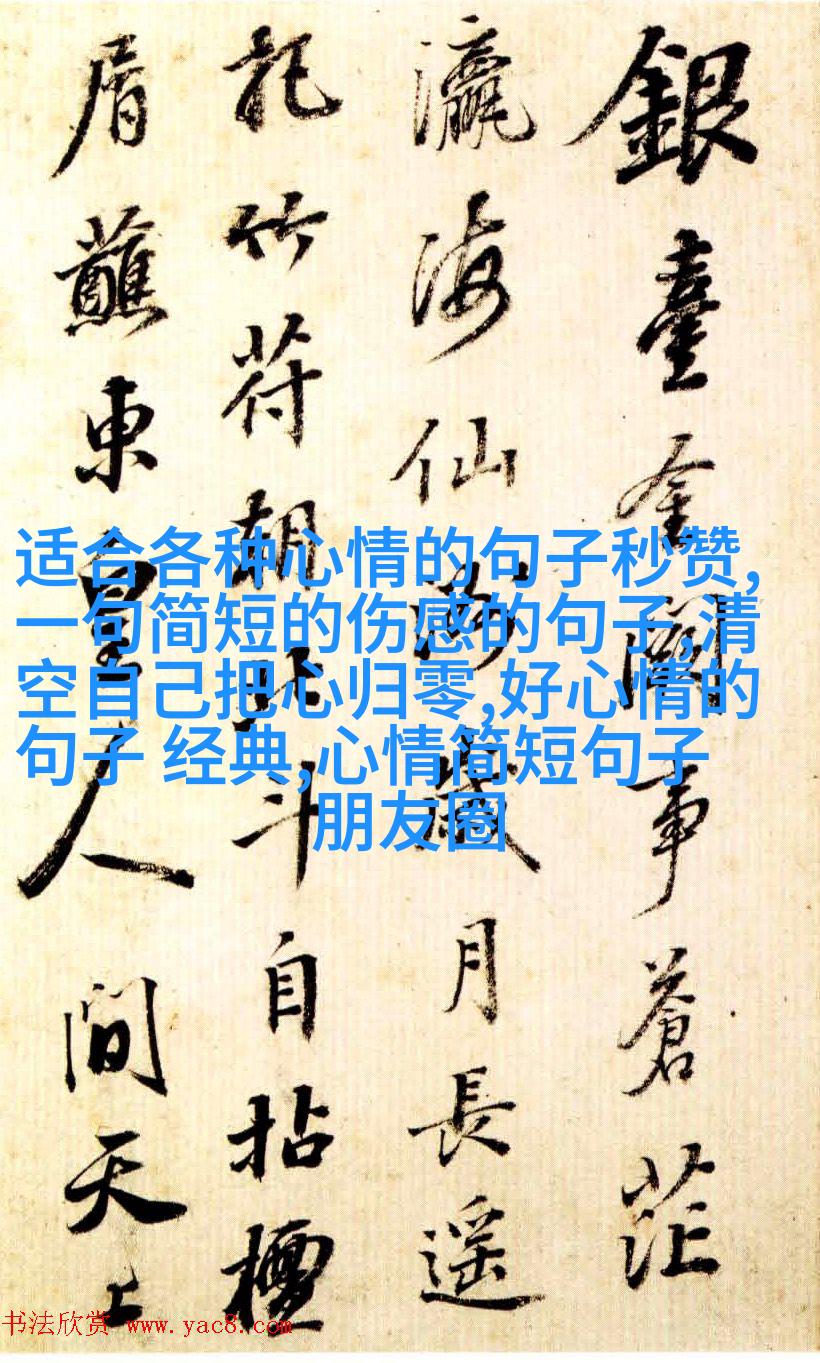 銀臺金闕事蒼茫
瀛海仙洲歲月長遥
記竹符朝北斗自拈檀
屑蘸東皇人間天上
适合各种心情的句子秒赞,
一句简短的伤感的句子,清
空自己把心归零,好心情的
句子 经典,心情简短句子
朋友圈
书法欣赏 www.yac8.com